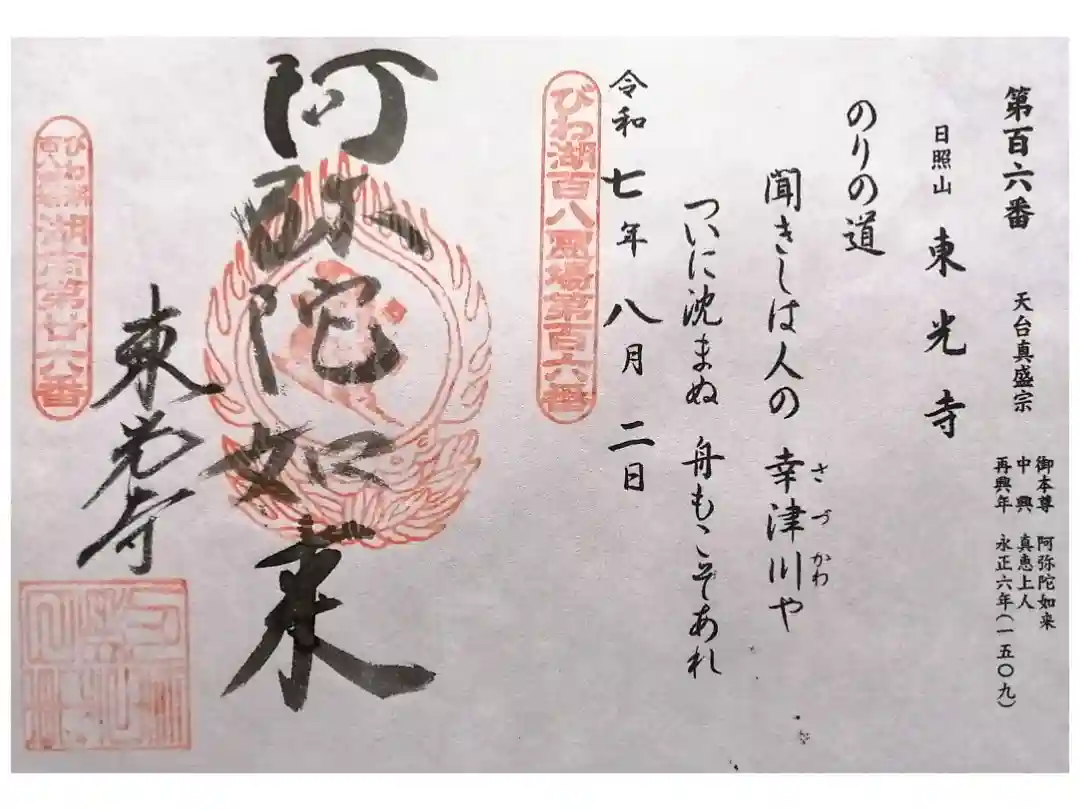 第百六番 天台真盛宗
御本尊 阿弥陀如来
中興 真恵上人
再興年 永正六年(一五〇九)
日照山 東光寺
のりの道
聞きしは人の 幸津川や
さづかわ
ついに沈まぬ 舟もこそあれ
令和七年八月二日
びわ湖百八霊場第百六番
阿弥陀如来
東光寺
びわ湖
百八霊場
湖南第廿六番